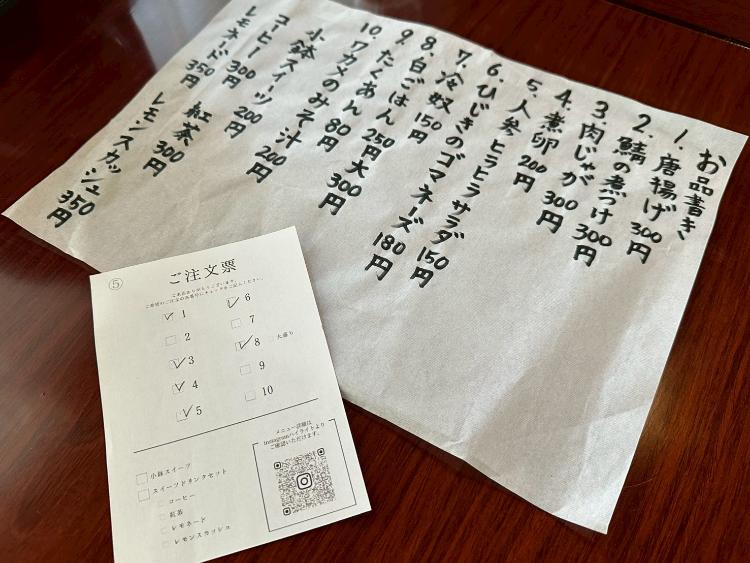 お品書き
1. 唐揚げ 300円
2. 鯖の煮つけ 300円
3. 肉じゃが 300円
4. 煮卵 200円
5. 人参ヒラヒラサラダ 150円
6. ひじきのゴマネーズ 180円
7. 冷奴 150円
8. 白ごはん 250円大300円
9. たくあん 80円
10. ワカメのみそ汁 200円
小鉢スイーツ 200円
コーヒー 300円 紅茶 300円
レモネード 350円 レモンスカッシュ 350円
⑤
ご注文票
ご来店ありがとうございます。
ご希望のご注文のお番号にチェックをご記入ください。
1
2
3
4
5
6
7
8 大盛り
9
10
小鉢スイーツ
スイーツドリンクセット
コーヒー
紅茶
レモネード
レモンスカッシュ
メニュー詳細は
Instagramハイライトより
ご確認いただけます。